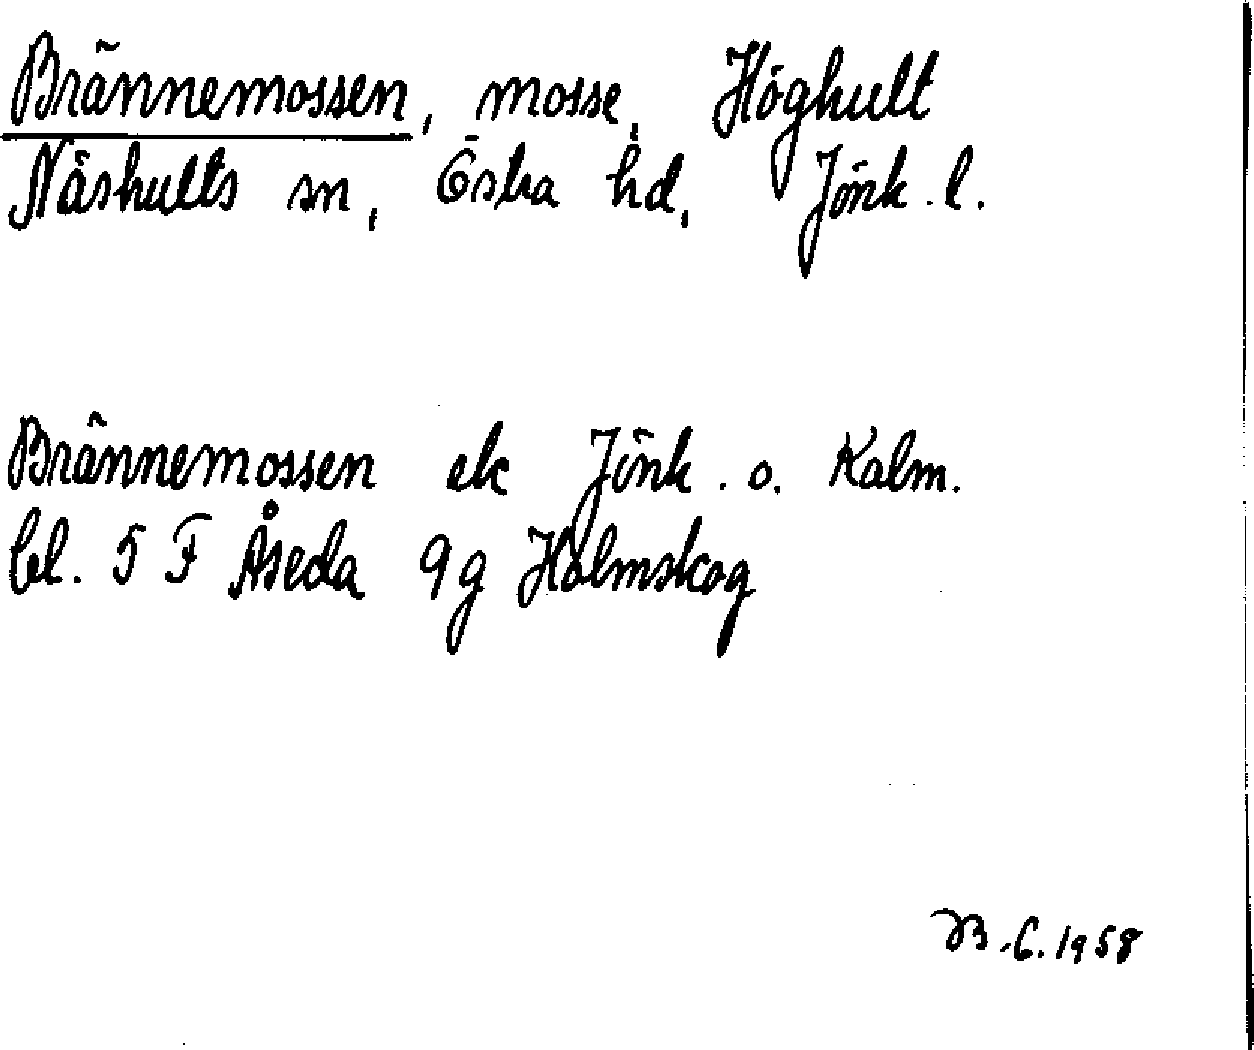 Brännemossen, mosse, Höghult
Näshults sn, Östra hd, Jönk. l.
Brännemossen ek Jönk. o. Kalm.
bl. 5 F Åseda 9g Holmskog
B.C. 1958